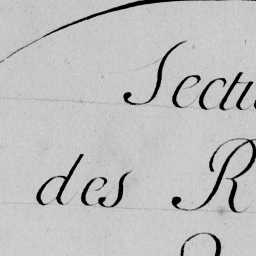 Secti
des R